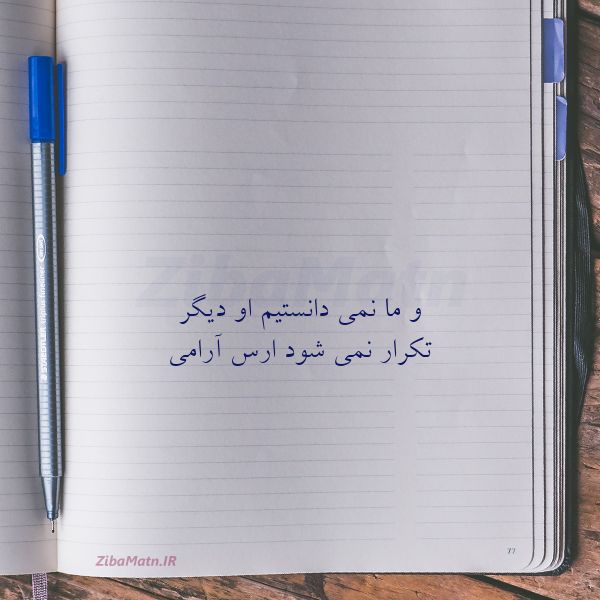 ZibaMatn
و ما نمی دانستیم او دیگر
تکرار نمی شود ارس آرامی
ZibaMatn.IR